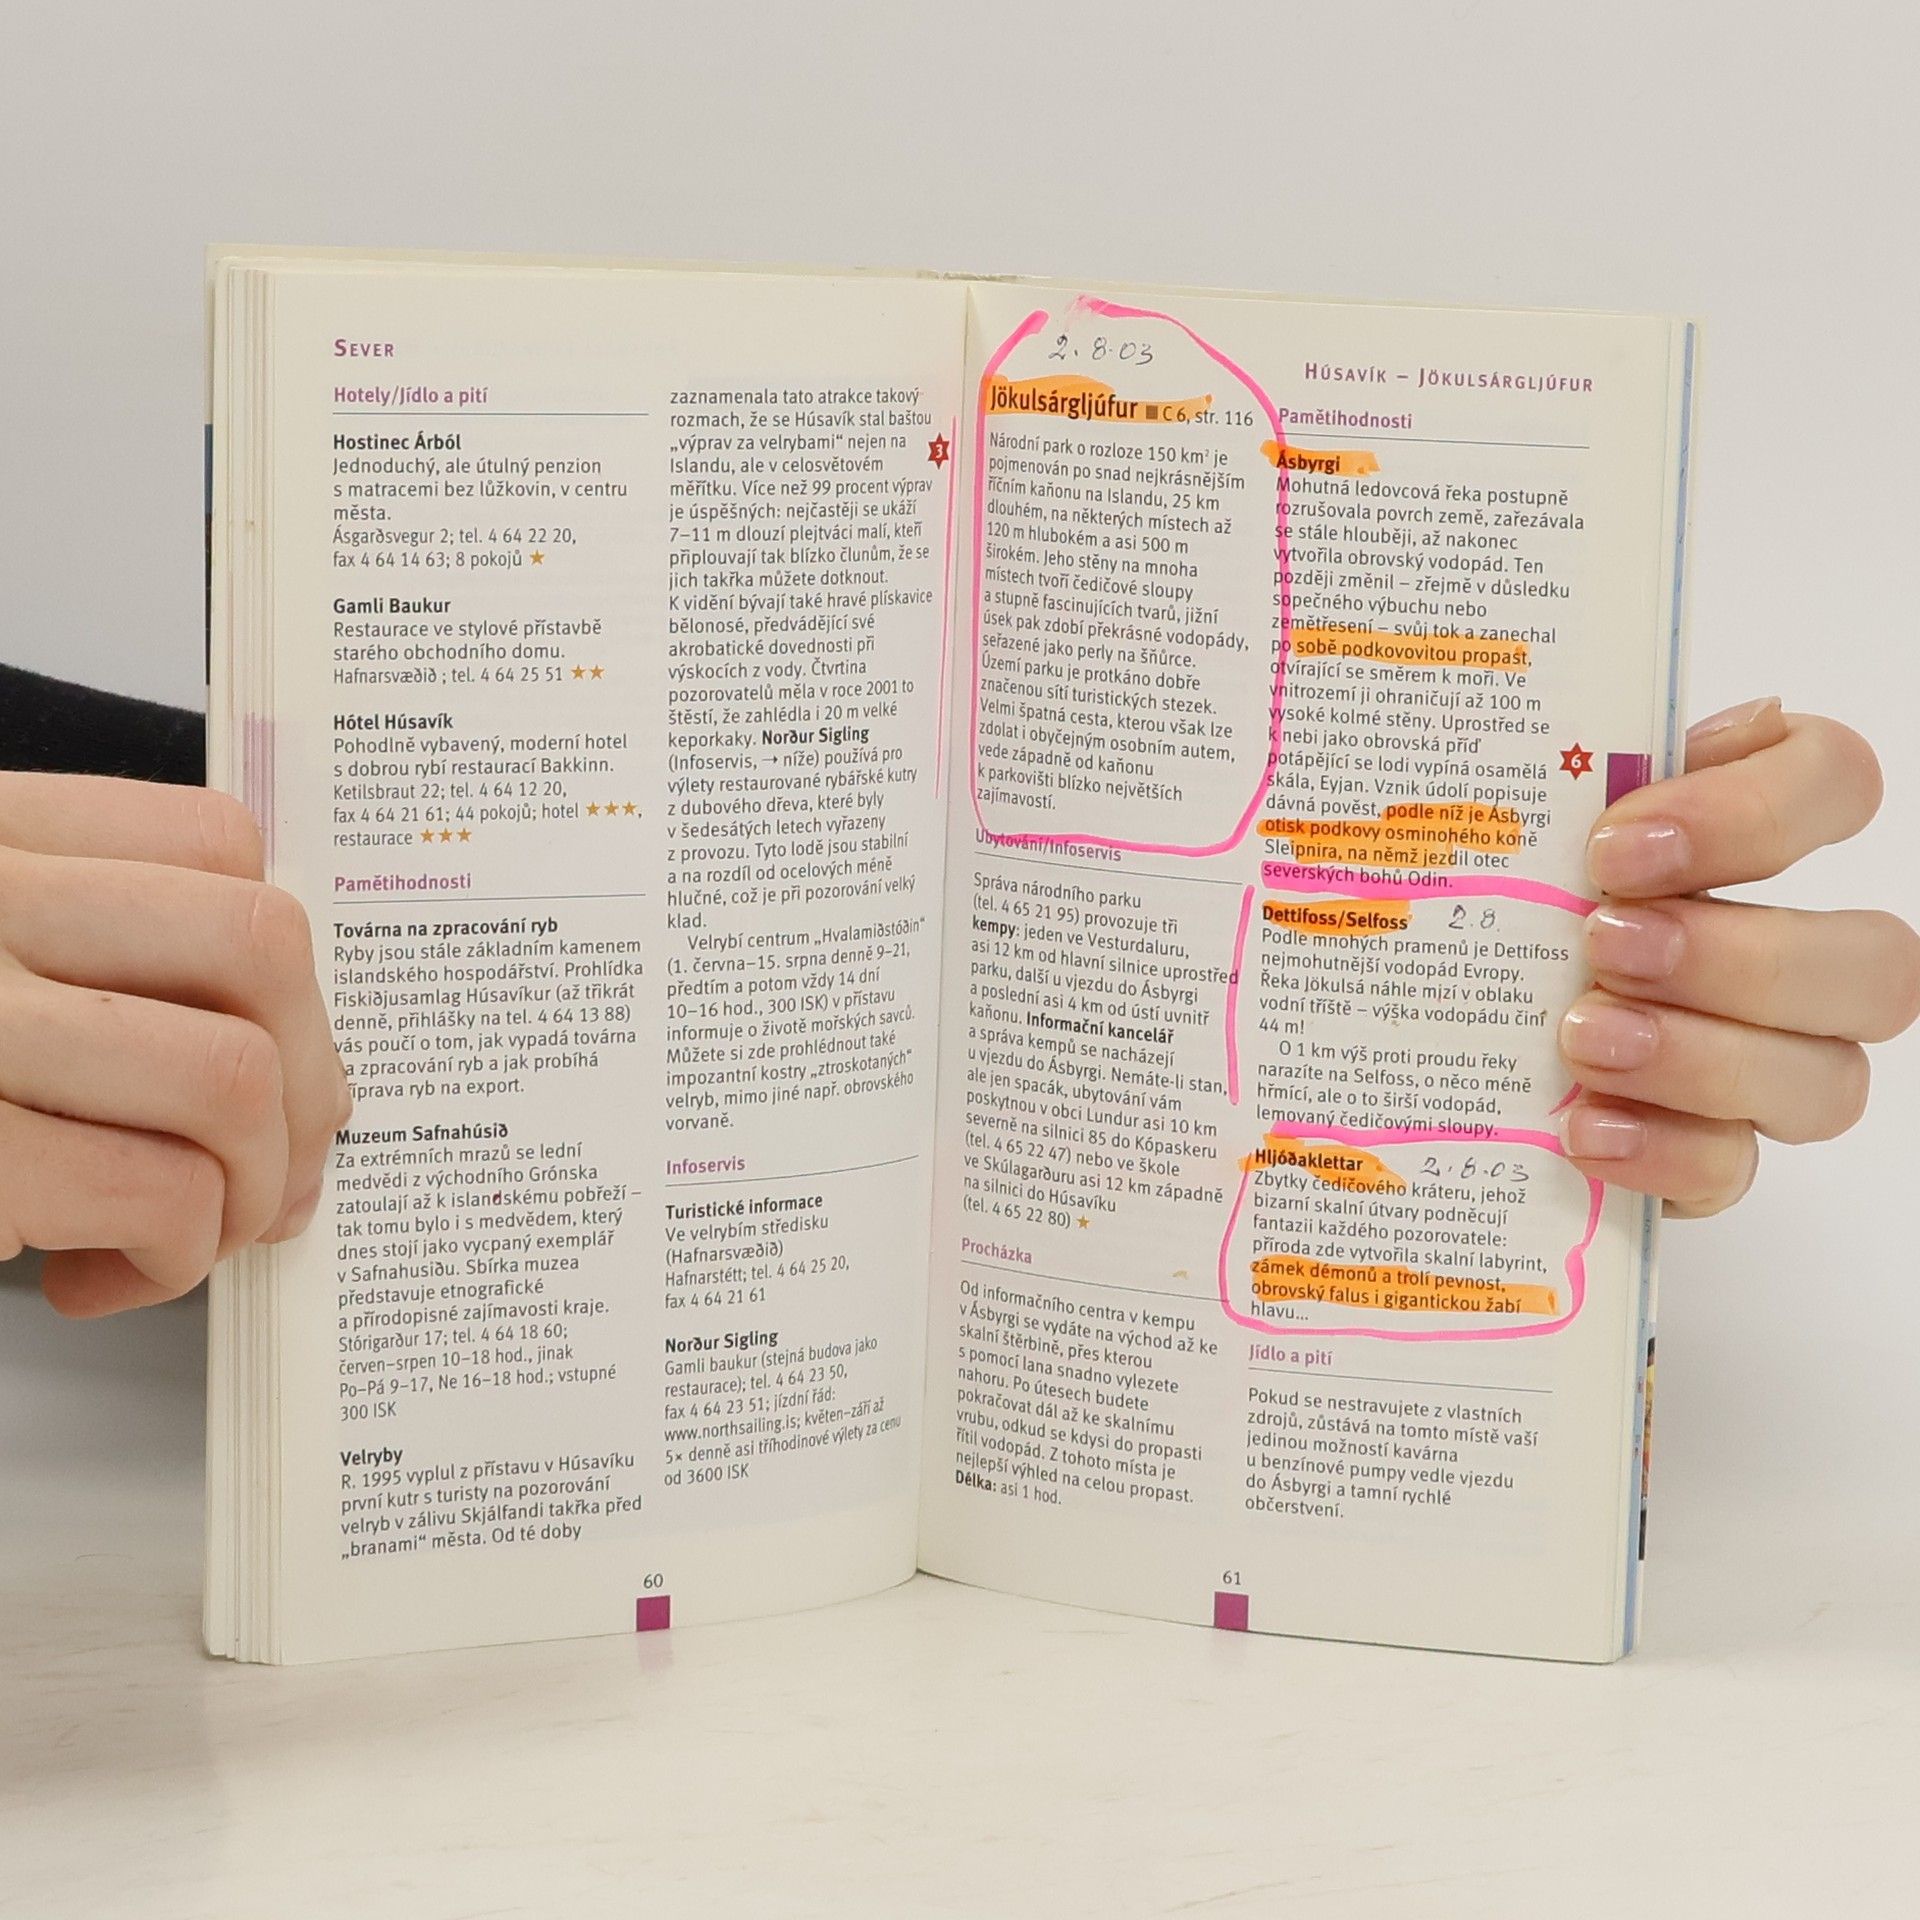 SEVER
Hotely/Jídlo a pití
Hostinec Árból
Jednoduchý, ale útulný penzion
s matracemi bez lůžkovin, v centru
města.
Ásgarðsvegur 2; tel. 4 64 22 20,
fax 4 64 14 63; 8 pokojů ★
Gamli Baukur
Restaurace ve stylové přístavbě
starého obchodního domu.
Hafnarsvæðið ; tel. 4 64 25 51 ★★
Hótel Húsavík
Pohodlně vybavený, moderní hotel
s dobrou rybí restaurací Bakkinn.
Ketilsbraut 22; tel. 4 64 12 20,
fax 4 64 21 61; 44 pokojů; hotel ★★★,
restaurace ★★★
Pamětihodnosti
Továrna na zpracování ryb
Ryby jsou stále základním kamenem
islandského hospodářství. Prohlídka
Fiskiðjusamlag Húsavíkur (až třikrát
denně, přihlášky na tel. 4 64 13 88)
vás poučí o tom, jak vypadá továrna
a zpracování ryb a jak probíhá
říprava ryb na export.
Muzeum Safnahúsið
Za extrémních mrazů se lední
medvědi z východního Grónska
zatoulají až k islandskému pobřeží –
tak tomu bylo i s medvědem, který
dnes stojí jako vycpaný exemplář
v Safnahusiðu. Sbírka muzea
představuje etnografické
a přírodopisné zajímavosti kraje.
Stórigarður 17; tel. 4 64 18 60;
červen–srpen 10–18 hod., jinak
Po–Pá 9–17, Ne 16–18 hod.; vstupné
300 ISK
Velryby
R. 1995 vyplul z přístavu v Húsavíku
první kutr s turisty na pozorování
velryb v zálivu Skjálfandi takřka před
„branami“ města. Od té doby
zaznamenala tato atrakce takový
rozmach, že se Húsavík stal baštou
„výprav za velrybami“ nejen na
Islandu, ale v celosvětovém
měřítku. Více než 99 procent výprav
je úspěšných: nejčastěji se ukáží
7–11 m dlouzí plejtváci malí, kteří
připlouvají tak blízko člunům, že se
jich takřka můžete dotknout.
K vidění bývají také hravé plískavice
bělonosé, předvádějící své
akrobatické dovednosti při
výskocích z vody. Čtvrtina
pozorovatelů měla v roce 2001 to
štěstí, že zahlédla i 20 m velké
keporkaky. Norður Sigling
(Infoservis, → níže) používá pro
výlety restaurované rybářské kutry
z dubového dřeva, které byly
v šedesátých letech vyřazeny
z provozu. Tyto lodě jsou stabilní
a na rozdíl od ocelových méně
hlučné, což je při pozorování velký
klad.
Velrybí centrum „Hvalamiðstóðin“
(1. června–15. srpna denně 9–21,
předtím a potom vždy 14 dní
10–16 hod., 300 ISK) v přístavu
informuje o životě mořských savců.
Můžete si zde prohlédnout také
impozantní kostry „ztroskotaných“
velryb, mimo jiné např. obrovského
vorvaně.
Infoservis
Turistické informace
Ve velrybím středisku
(Hafnarsvæðið)
Hafnarstétt; tel. 4 64 25 20,
fax 4 64 21 61
Norður Sigling
Gamli baukur (stejná budova jako
restaurace); tel. 4 64 23 50,
fax 4 64 23 51; jízdní řád:
www.northsailing.is; květen–září až
5× denně asi tříhodinové výlety za cenu
od 3600 ISK
3
60
HÚSAVÍK – JÖKULSÁRGLJÚFUR
2. 8.03
Jökulsárgljúfur ■ C 6, str. 116
Národní park o rozloze 150 km² je
pojmenován po snad nejkrásnějším
říčním kaňonu na Islandu, 25 km
dlouhém, na některých místech až
120 m hlubokém a asi 500 m
širokém. Jeho stěny na mnoha
místech tvoří čedičové sloupy
a stupně fascinujících tvarů, jižní
úsek pak zdobí překrásné vodopády,
seřazené jako perly na šňůrce.
Území parku je protkáno dobře
značenou sítí turistických stezek.
Velmi špatná cesta, kterou však lze
zdolat i obyčejným osobním autem,
vede západně od kaňonu
k parkovišti blízko největších
zajímavostí.
Ubytování/Infoservis
Správa národního parku
(tel. 4 65 21 95) provozuje tři
kempy: jeden ve Vesturdaluru,
asi 12 km od hlavní silnice uprostřed
parku, další u vjezdu do Ásbyrgi
a poslední asi 4 km od ústí uvnitř
kaňonu. Informační kancelář
a správa kempů se nacházejí
u vjezdu do Ásbyrgi. Nemáte-li stan,
ale jen spacák, ubytování vám
poskytnou v obci Lundur asi 10 km
severně na silnici 85 do Kópaskeru
(tel. 4 65 22 47) nebo ve škole
ve Skúlagarðuru asi 12 km západně
na silnici do Húsavíku
(tel. 4 65 22 80) ★
Procházka
Od informačního centra v kempu
v Ásbyrgi se vydáte na východ až ke
skalní štěrbině, přes kterou
s pomocí lana snadno vylezete
nahoru. Po útesech budete
pokračovat dál až ke skalnímu
vrubu, odkud se kdysi do propasti
řítil vodopád. Z tohoto místa je
nejlepší výhled na celou propast.
Délka: asi 1 hod.
Pamětihodnosti
Ásbyrgi
Mohutná ledovcová řeka postupně
rozrušovala povrch země, zařezávala
se stále hlouběji, až nakonec
vytvořila obrovský vodopád. Ten
později změnil – zřejmě v důsledku
sopečného výbuchu nebo
zemětřesení – svůj tok a zanechal
po sobě podkovovitou propast,
otvírající se směrem k moři. Ve
vnitrozemí ji ohraničují až 100 m
vysoké kolmé stěny. Uprostřed se
k nebi jako obrovská příď
potápějící se lodi vypíná osamělá
skála, Eyjan. Vznik údolí popisuje
dávná pověst, podle níž je Ásbyrgi
otisk podkovy osminohého koně
Sleipnira, na němž jezdil otec
severských bohů Odin.
6
Dettifoss/Selfoss 2.8.
Podle mnohých pramenů je Dettifoss
nejmohutnější vodopád Evropy.
Řeka Jökulsá náhle mizí v oblaku
vodní tříště – výška vodopádu činí
44 m!
O 1 km výš proti proudu řeky
narazíte na Selfoss, o něco méně
hřmící, ale o to širší vodopád,
lemovaný čedičovými sloupy.
Hljóðaklettar 2.8.03
Zbytky čedičového kráteru, jehož
bizarní skalní útvary podněcují
fantazii každého pozorovatele:
příroda zde vytvořila skalní labyrint,
zámek démonů a trolí pevnost,
obrovský falus i gigantickou žabí
hlavu...
Jídlo a pití
Pokud se nestravujete z vlastních
zdrojů, zůstává na tomto místě vaší
jedinou možností kavárna
u benzínové pumpy vedle vjezdu
do Ásbyrgi a tamní rychlé
občerstvení.
61